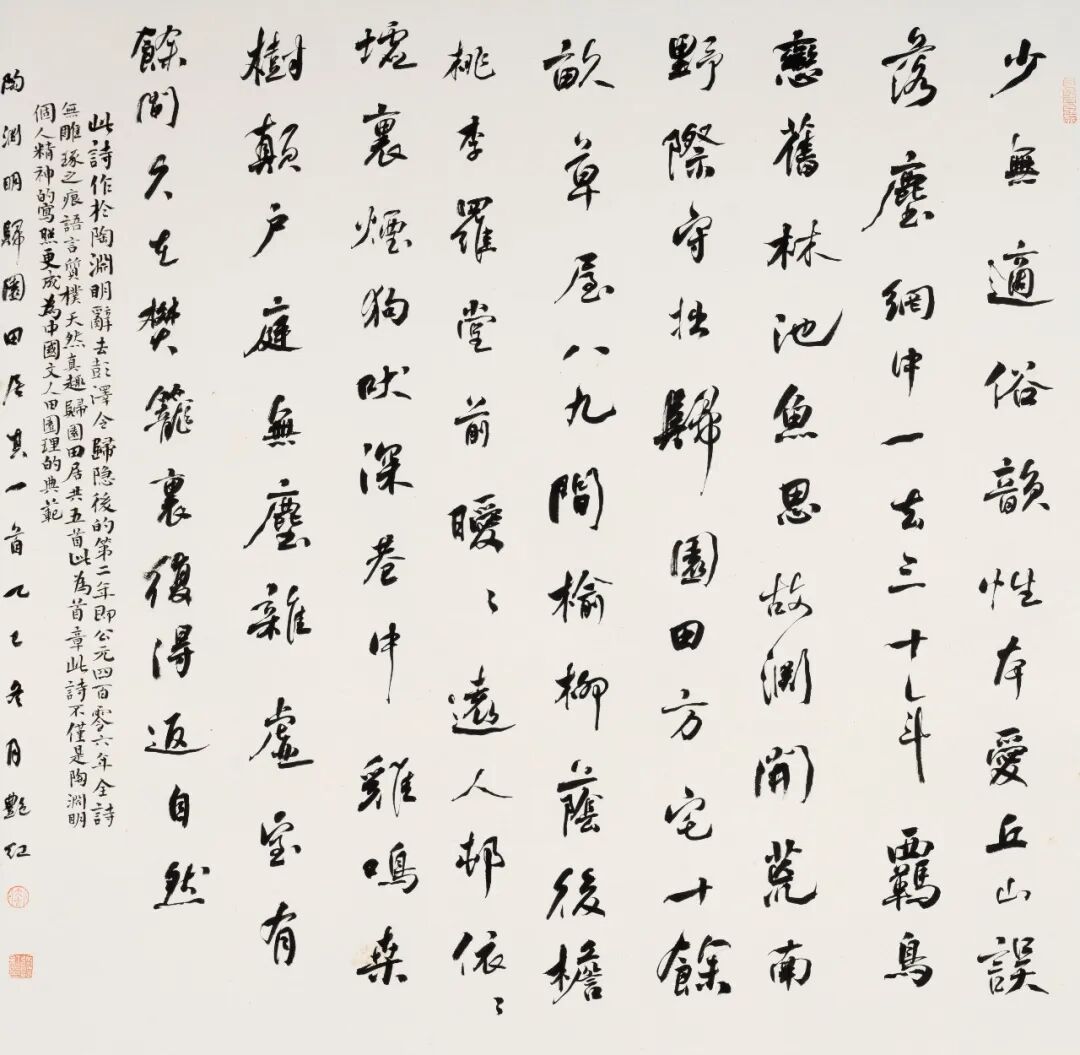 少無適俗韻性本愛丘山誤
落塵網中一去三十年羈鳥
戀舊林池魚思故淵開荒南
野際守拙歸園田方宅十餘
畝草屋八九間榆柳蔭後檐
桃李羅堂前曖〻遠人邨依〻
墟裏煙狗吠深巷中雞鳴桑
樹顛户庭無塵雜虛室有
餘閒久在樊籠裏復得返自然
此詩作於陶淵明辭去彭澤令歸隐後的第二年即公元四百零六年全詩
無雕琢之痕語言質樸天然真趣歸園田居共五首此為首章此詩不僅是陶淵明
個人精神的寫照更成為中國文人田園理的典範
陶淵明歸園田居其一首乙巳冬月艷红